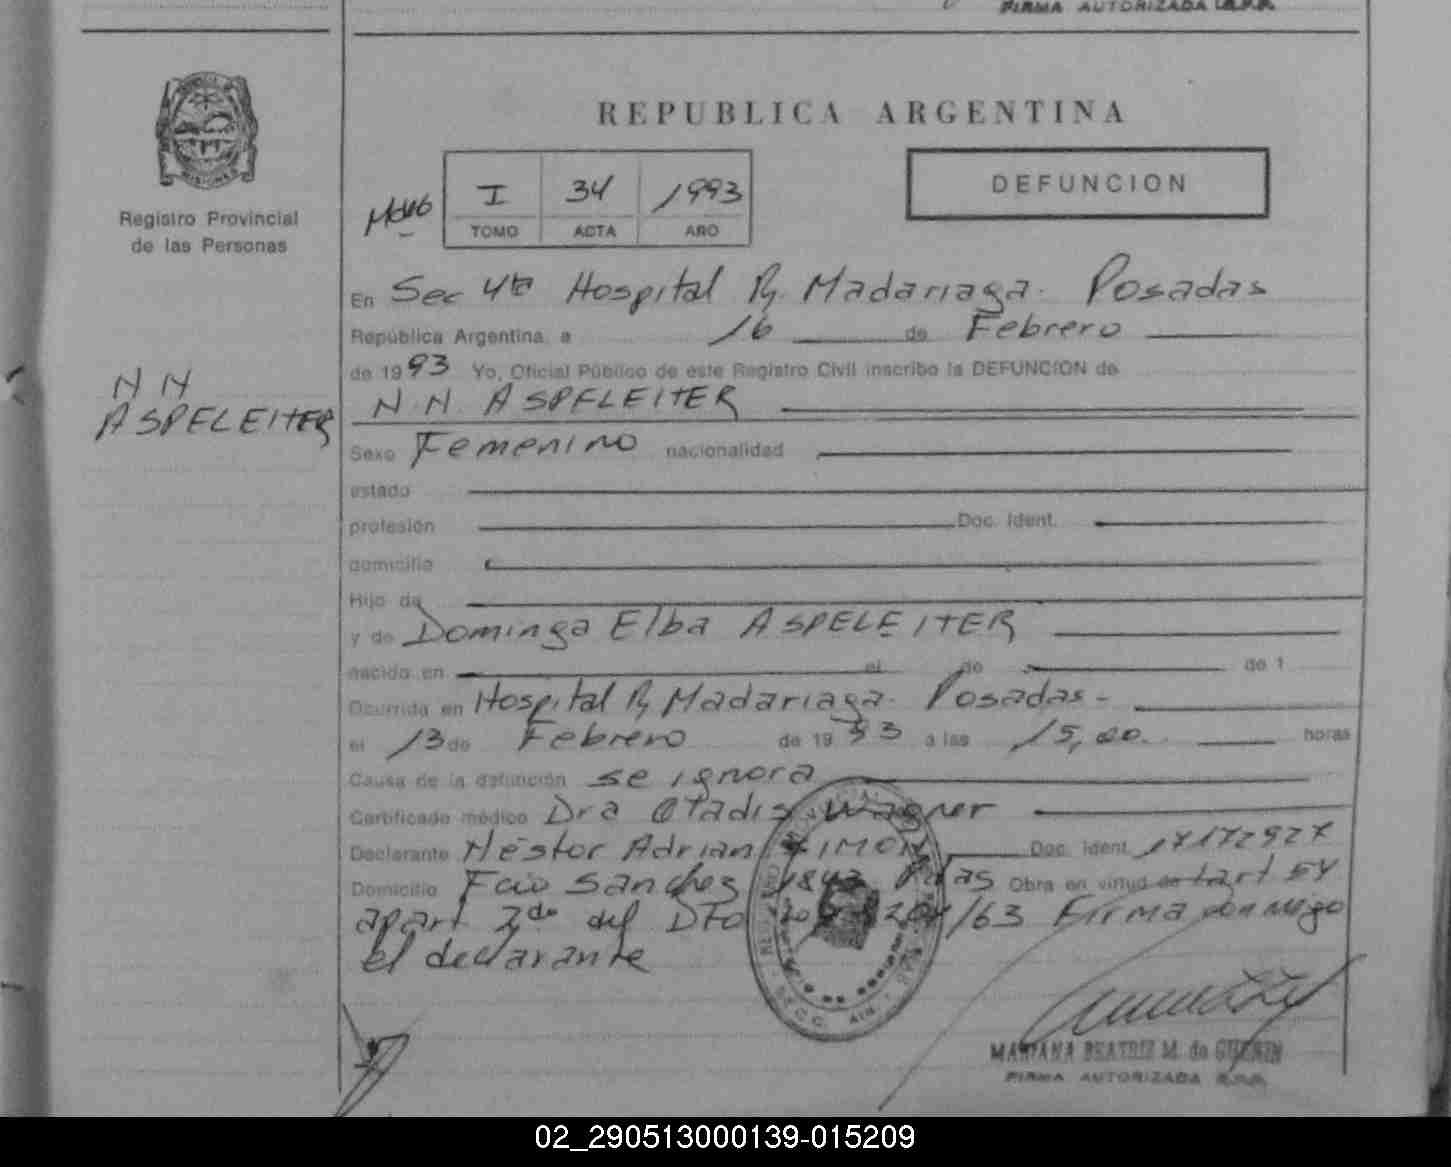 FIRMA AUTORIZADA R.P.P.
REPUBLICA ARGENTINA
DEFUNCION
I 34 1993
TOMO ACTA AÑO
MISIONES
Registro Provincial
de las Personas
En Sec 4ta Hospital R. Madariaga. Posadas
República Argentina, a 16 de Febrero
de 1993 Yo, Oficial Público de este Registro Civil inscribo la DEFUNCION de
N N
ASPELEITER
N. N. ASPELEITER
Sexo Femenino nacionalidad
estado
profesión Doc. Ident.
domicilio
Hijo de
y de Dominga Elba ASPELEITER
nacido en el de de 1
Ocurrida en Hospital R. Madariaga. Posadas-
el 13 de Febrero de 1993 a las 15,00 horas
Causa de la defunción se ignora
Certificado médico Dra Wagner
Declarante Néstor Adrian Doc. Ident. 17172927
Domicilio Fco Sanchez Obra en virtud de art
apart 2do del /63 Firma conmigo
el declarante
MARIANA BEATRIZ M. de
FIRMA AUTORIZADA R.P.P.
02_290513000139-015209